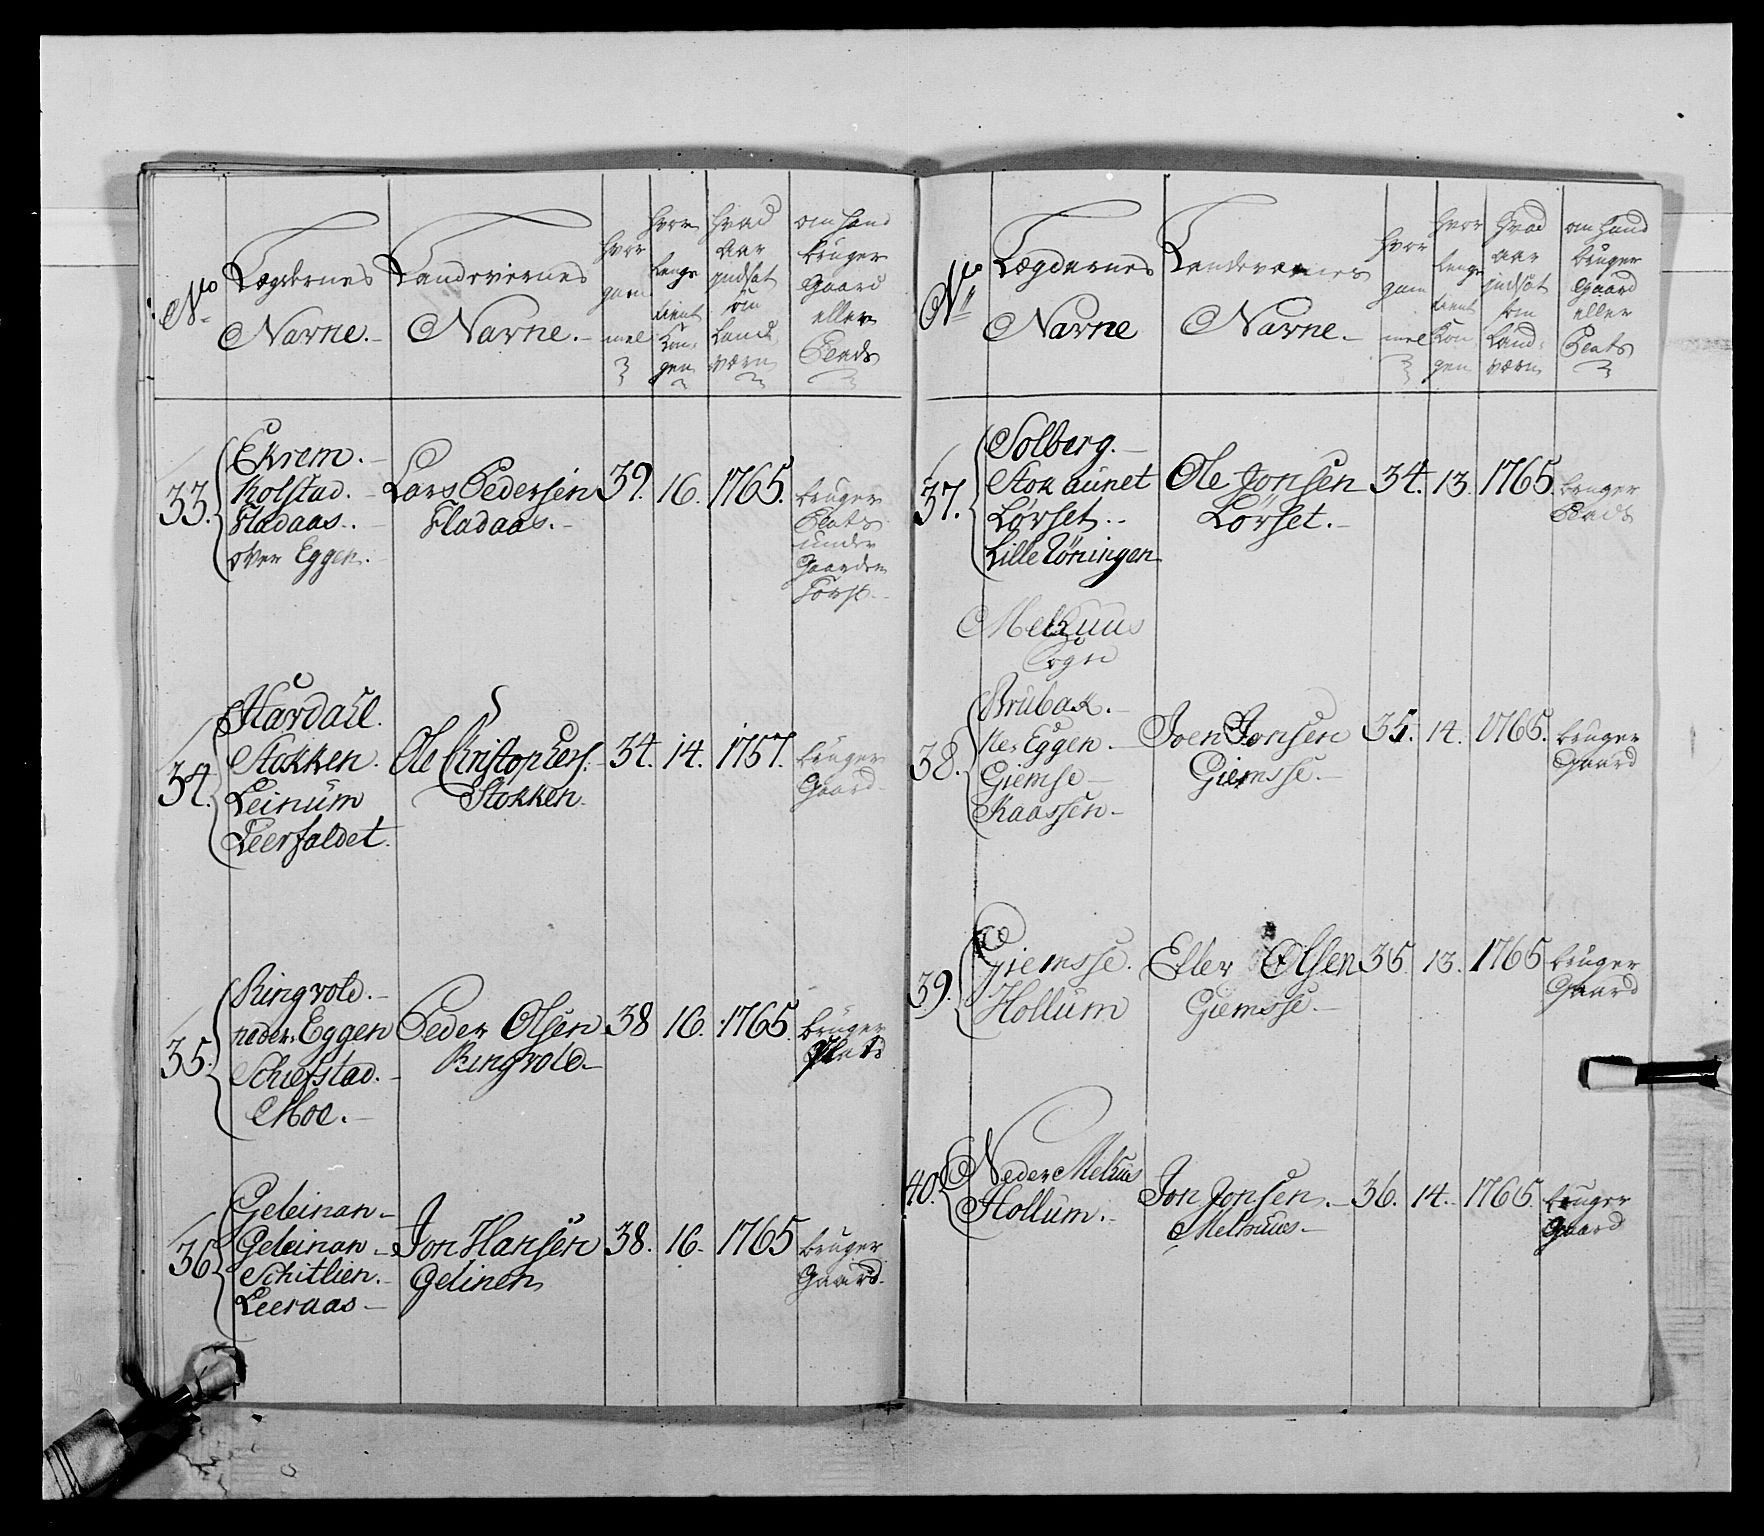 No
Lægdernes
Navne.
Landeviernes
Navne.
hvor
gam
mel
hvor
lenge
tient
Kon-
gen
hvad
aar
indsat
som
Land-
værn
om hand
bruger
Gaard
eller
Plads
33.
Ekrem.
Kolstad.
Fladaas.
over Eggen.
Lars Pedersen
Fladaas.
39.
16.
1765.
bruger
Plats
under
Gaarden
34.
Hardahl.
Stokken.
Leinum
Leerfaldet.
Ole Christophers.
Stokken.
34.
14.
1757.
bruger
Gaard.
35.
Ringvold.
neder Eggen
Schiefstad.
Moe.
Peder Olsen
Ringvold
38
16.
1765.
bruger
Plads
36
Geleinan
Geleinan
Schitlien.
Leeraas
Jon Hansen
Gelinen
38.
16.
1765
bruger
Gaard.
No
Lægdernes
Navne
Landeværnes
Navne.
hvor
gam
mel
hvor
lenge
tient
Kon
gen
hvad
aar
indsat
som
Land-
værn
om hand
bruger
gaard
eller
Plats
37.
Solberg.
Stokaunet
Lørset.
Lille Løningen
Ole Jonsen
Lørset.
34.
13.
1765.
bruger
Plads
Melhuus
Sogn
38.
Brubak.
Ne. Eggen
Giemse
Kaassen
Joen Jonsen
Giemsse.
35.
14.
1765.
bruger
Gaard
39.
Giemsse.
Hollum
Efler Olsen
Giemsse.
35
13.
1765
bruger
Gaard
40.
Neder Melhus
Hollum.
Jon Jonsen.
Melhuus
36.
14.
1765.
bruger
Gaard